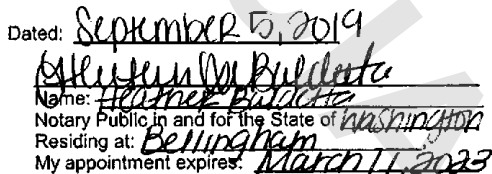 Dated: September 5, 2019
Name: Heather Baldetta
Notary Public in and for the State of Washington
Residing at: Bellingham
My appointment expires: March 11, 2023